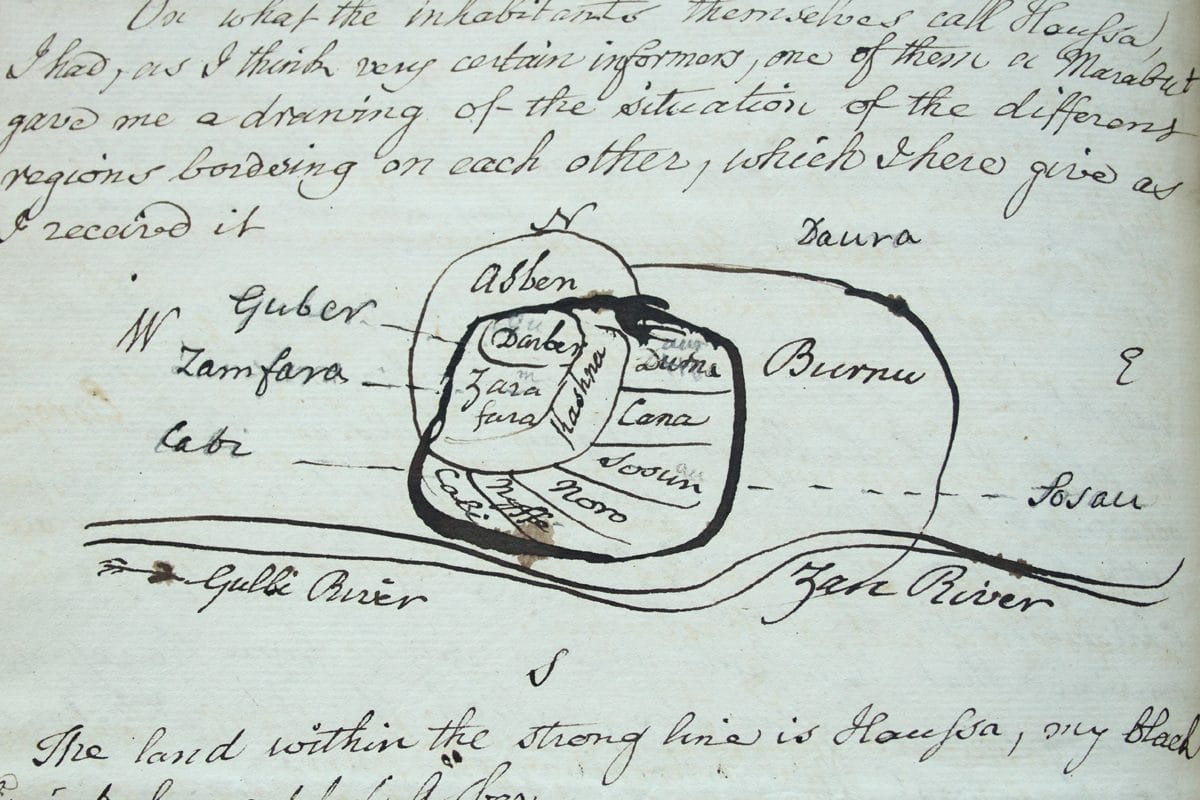 On what the inhabitants themselves call Haussa,
I had, as I think very certain informers, one of them a Marabut
gave me a drawing of the situation of the different
regions bordering on each other, which I here give as
I received it
N
Daura
Asben
W
Guber
Zamfara
Cabi
Kashna
Zara
fara
Cana
Burnu
E
Noro
Nyffe
Cabi
Sosau
Gulbi River
Zan River
S
The land within the strong line is Haussa, my black